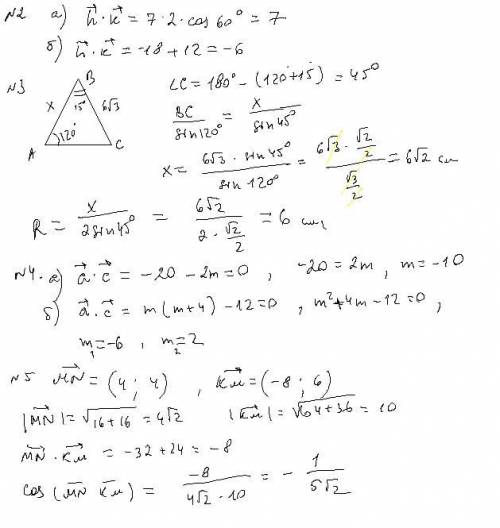 №2 a) n⃗·k⃗ = 7·2·cos 60° = 7
б) n⃗·k⃗ = -18+12 = -6
№3
B
x 15° 6√3
120°
A C
∠C = 180° - (120°+15°) = 45°
BC/sin120° = x/sin45°
x = 6√3·sin45°/sin120° = (6√3·√2/2)/(√3/2) = 6√2 см
R = x/2sin45° = 6√2/(2·√2/2) = 6 см,
№4. a) a⃗·c⃗ = -20-2m=0, -20=2m, m=-10
б) a⃗·c⃗ = m(m+4)-12=0, m²+4m-12=0,
m₁=-6, m₂=2
№5 MN⃗ = (4; 4), KM⃗ = (-8; 6)
|MN⃗| = √16+16 = 4√2 |KM⃗| = √64+36 = 10
MN⃗·KM⃗ = -32+24 = -8
cos(MN⃗ KM⃗) = -8/(4√2·10) = - 1/5√2